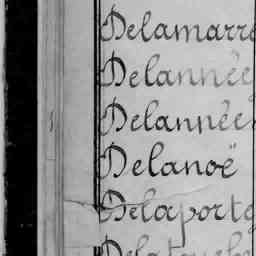 Delamarre
Delannée
Delannée
Delanoë
Delaporte